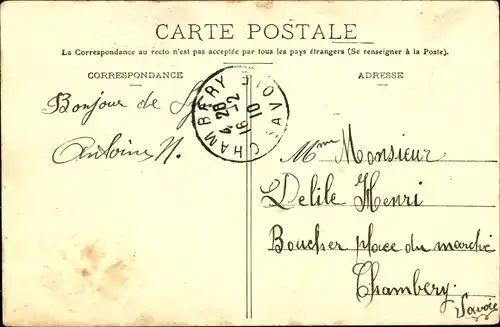 CARTE POSTALE
La Correspondance au recto n'est pas acceptée par tous les pays étrangers (Se renseigner à la Poste).
CORRESPONDANCE
ADRESSE
Bonjour de
Antoine N.
CHAMBERY SAVOIE
4 20
16 -12
10
Mme Monsieur
et
Delile Henri
Boucher place du marché
Chambery.
Savoie